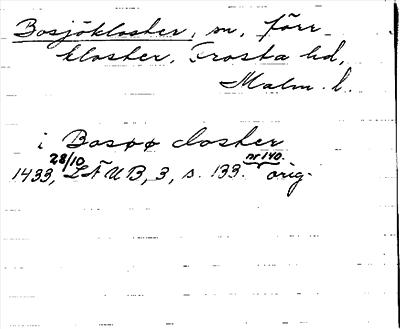 Bosjökloster, sn, förr
kloster, Frosta hd,
Malm. l.
i Bosøø closter
28/10 nr 140.
1433, LÄUB, 3, s. 133. orig.